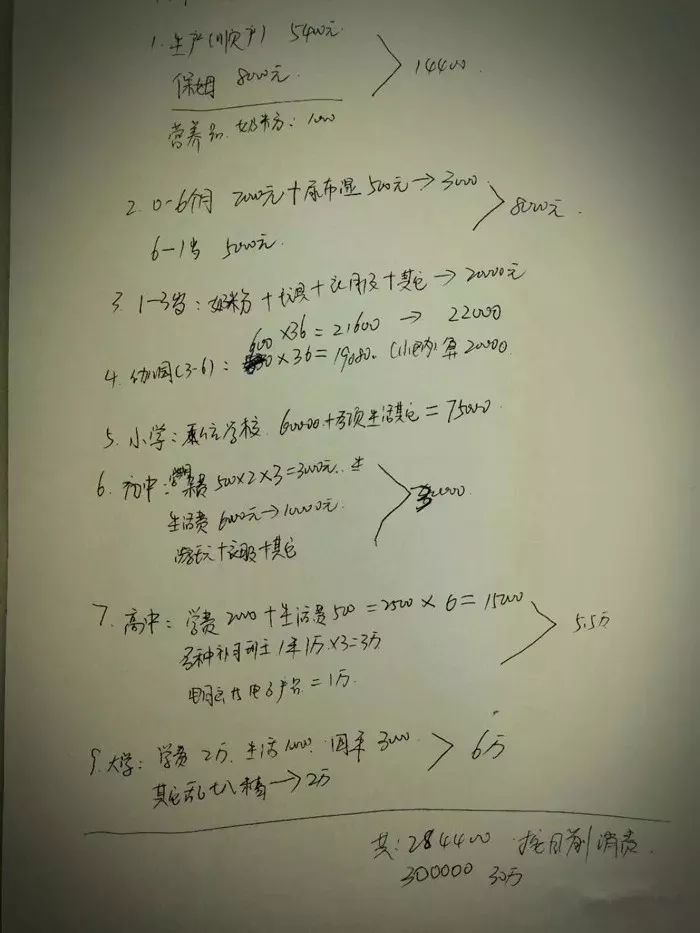 1. 生产(顺产) 5400元
保姆 8000元. 14400.
营养品.奶粉: 1000
2. 0-6个月 2000元+尿布湿 500元→3000.
8000元.
6-1岁 5000元.
3. 1-3岁: 奶粉+玩具+衣服+其它→20000元
600×36=21600 → 22000
4. 幼儿园(3-6): ×36=19080. 算20000.
5. 小学: 学校. 60000+各项生活其它=75000.
6. 初中: 学杂费 500×2×3=3000元..生
生活费 6000元→10000元.
+衣服+其它
7. 高中: 学费 2000+生活费 500=2500×6=15000
5.5万
各种补习班 1年1万×3=3万
电子产品=1万.
9. 大学: 学费 2万. 生活 1000. 回来 3000. 6万
其它乱七八糟→2万
共: 284400 按目前消费.
300000 30万